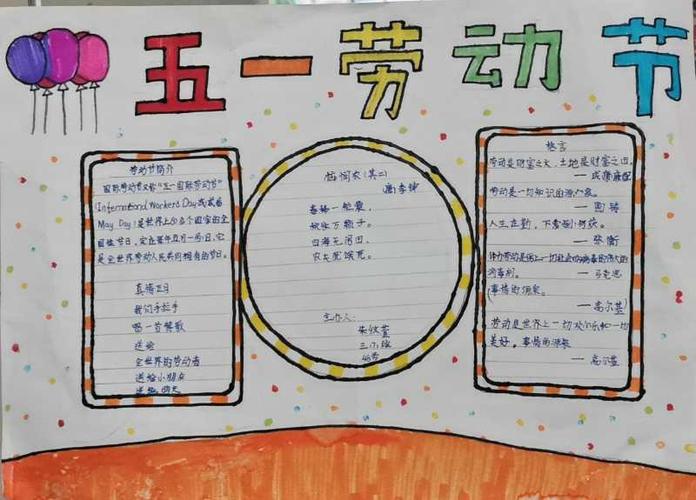 五一劳动节
劳动节简介
国际劳动节又称“五一国际劳动节”
(International Workers' Day或
May Day)是世界上80多个国家的全
国性节日,定在每年五月一日,它
是全世界劳动人民共同拥有的节日。
五月五日
我们手拉手
唱一首赞歌
送给
全世界的劳动者
送给小朋友
悯农(其二)
唐李绅
春种一粒粟,
秋收万颗子。
四海无闲田,
农夫犹饿死。
主办人:
格言
劳动是财富之父,土地是财富之母。
— 威廉配
劳动是一切知识的源泉。
— 陶铸
人生在勤,不索何获。
— 张衡
— 马克思
— 高尔基
劳动是世界上一切欢乐和一切
美好,事情的源泉
— 高尔基